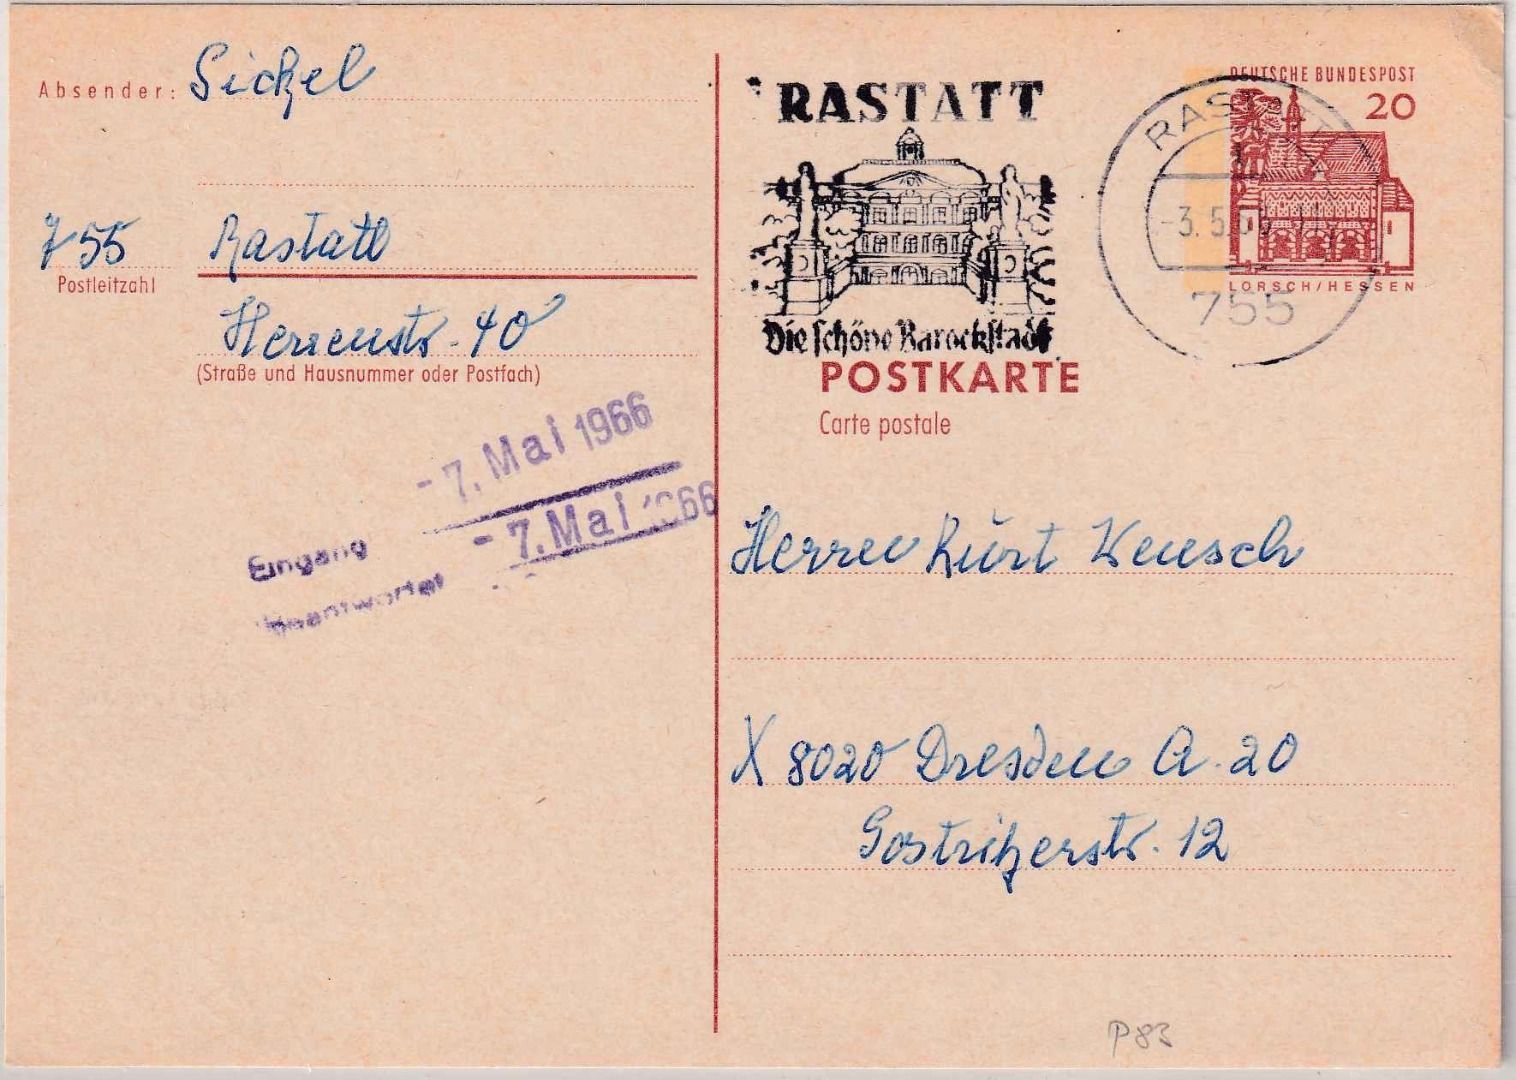 Absender: Sickel
755 Rastatt
Postleitzahl
Herrenstr. 40
(Straße und Hausnummer oder Postfach)
- 7. Mai 1966
Eingang - 7. Mai 1966
Beantwortet
RASTATT
Die schöne Barockstadt
RASTATT
-3. 5. 66
755
DEUTSCHE BUNDESPOST
20
LORSCH/HESSEN
POSTKARTE
Carte postale
Herrn Kurt
X 8020 Dresden A. 20
Gostritzerstr. 12
P83